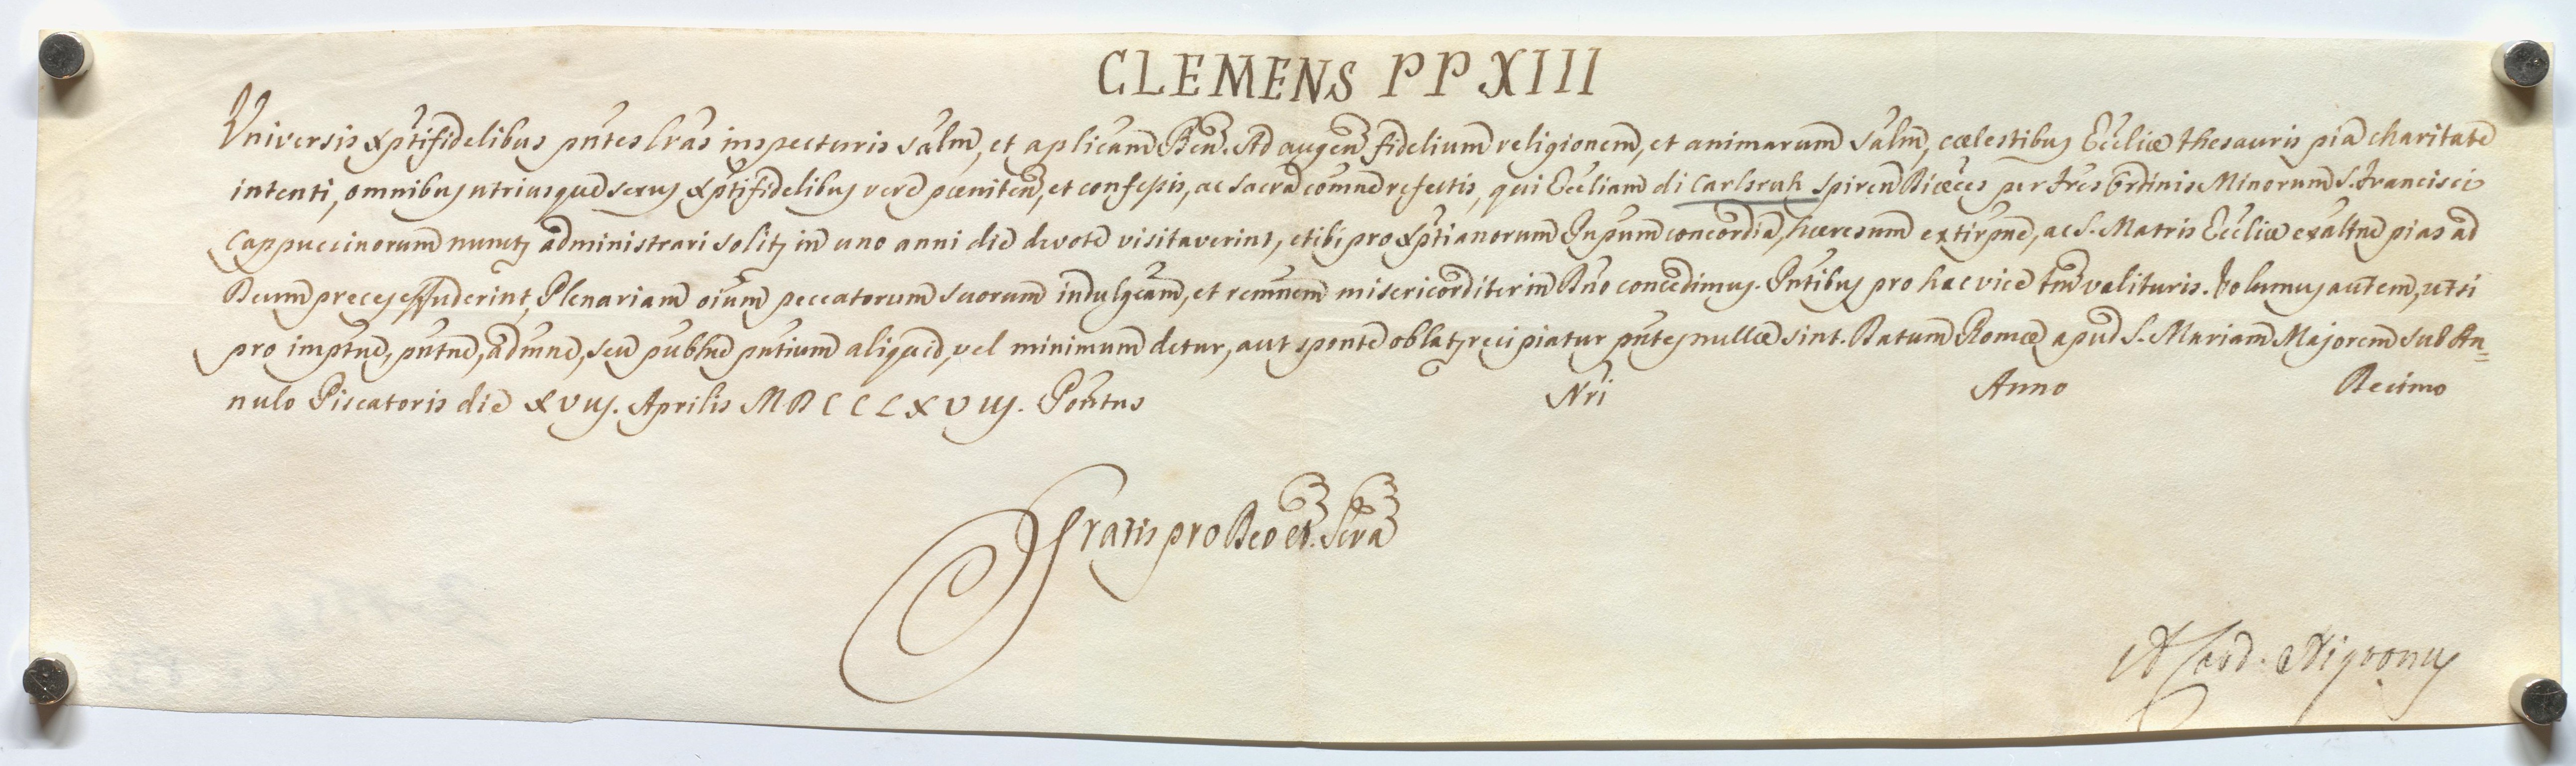 CLEMENS PP XIII
Universis Xptifidelibus pntes lras inspecturis salm, et aplicam Ben. Ad augen fidelium religionem, et animarum salm, cœlestibus Eccliæ thesauris pia charitate
intenti, omnibus utriusque sexus Xptifidelibus vere pœniten, et confessis, ac sacra comne refectis, qui Eccliam di Carlsruh Spiren Diœces per fres Ordinis Minorum S. Francisci
Cappuccinorum nuncup administrari solit in uno anni die devote visitaverint, et ibi pro Xptianorum Pnpum concordia, hæresum extirpne, ac S. Matris Ecclie exaltne pias ad
Deum preces effuderint, Plenariam oium peccatorum suorum indulgeam, et remnem misericorditer in Dno concedimus. Pntibus pro hac vice tm valituris. Volumus autem, ut si
pro imptne, pntne, admne, seu publne pntium aliquid, vel minimum detur, aut sponte oblat recipiatur pntes nullæ sint. Datum Romæ apud S. Mariam Majorem sub An=
nulo Piscatoris die XVIIJ. Aprilis MDCCLXVIIJ. Pontus Nri Anno Decimo
Gratis pro Deo et Scra
A Card. Nigronus